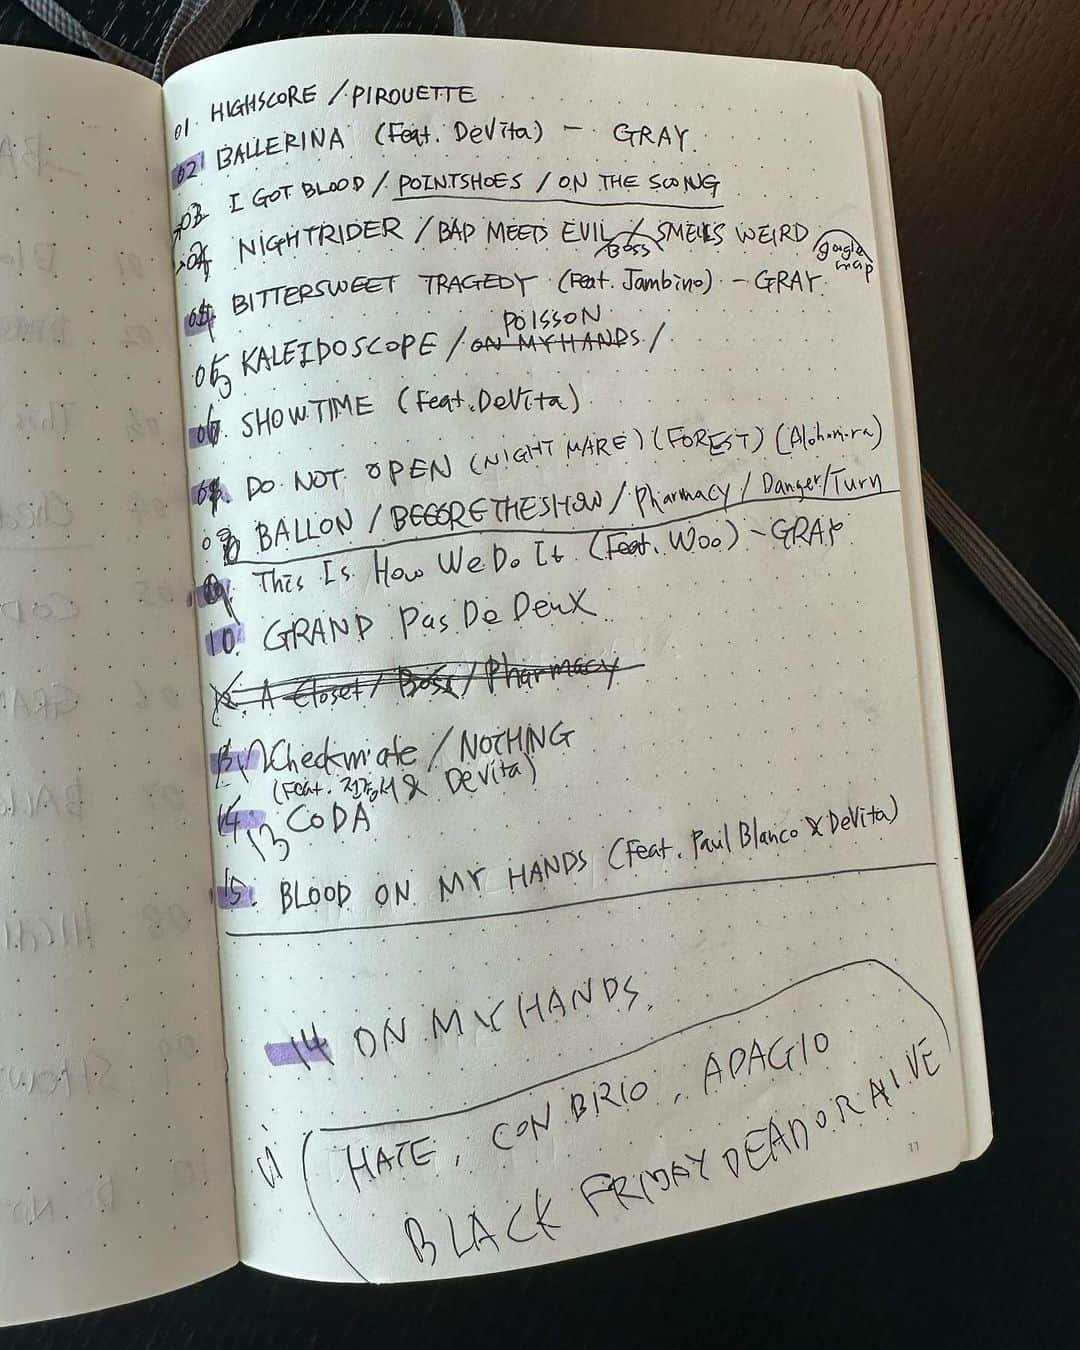 01. HIGHSCORE / PIROUETTE
02. BALLERINA (Feat. DeVita) - GRAY.
03 I GOT BLOOD / POINTSHOES / ON THE SWING
04 NIGHTRIDER / BAD MEETS EVIL / SMELLS WEIRD google map
Boss
BITTERSWEET TRAGEDY (Feat. Jambino) - GRAY.
POISSON
05 KALEIDOSCOPE / ON MY HANDS /
SHOWTIME (Feat. DeVita)
DO NOT OPEN (NIGHTMARE) (FOREST) (Alohomora)
BALLON / BEFORE THE SHOW / Pharmacy / Danger / Turn
09. This Is How We Do It (Feat. Woo) - GRAY
10. GRAND Pas De Deux
A Closet / Boss / Pharmacy
12 Checkmate / NOTHING
(Feat. & DeVita)
14. 13 CODA
15. BLOOD ON MY HANDS (Feat. Paul Blanco & DeVita)
14 ON MY HANDS.
HATE, CON BRIO, ADAGIO
BLACK FRIDAY DEAD OR ALIVE
77